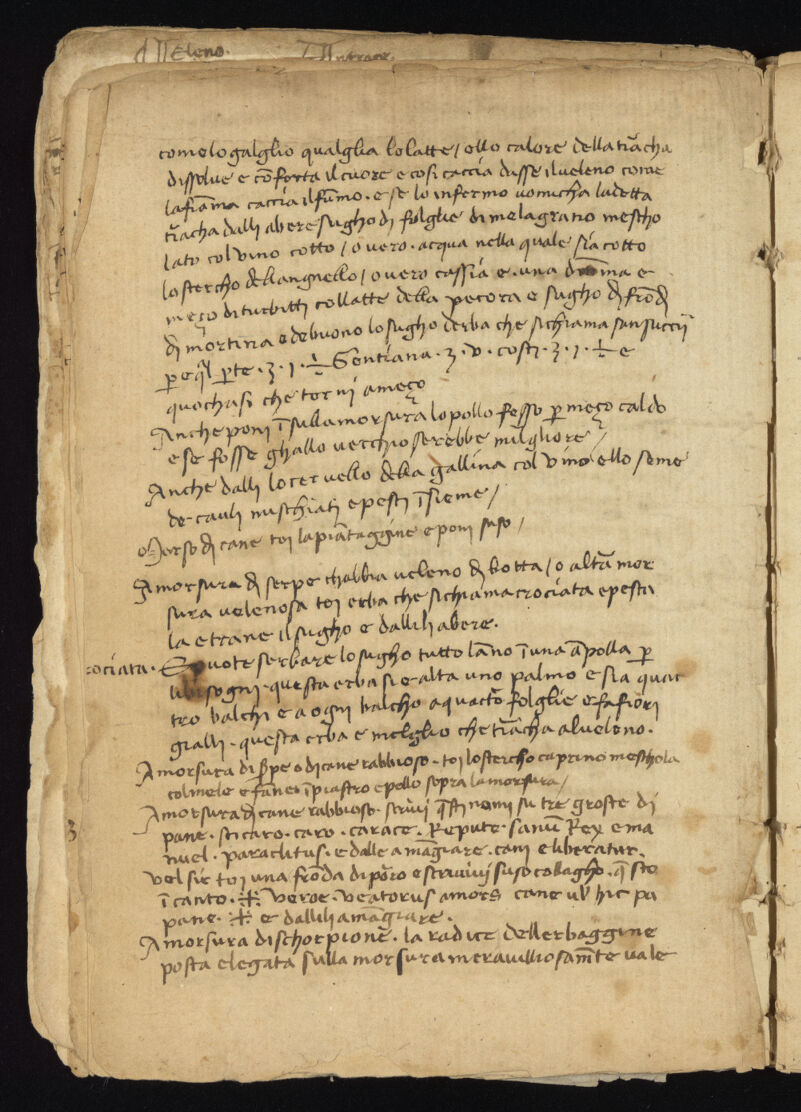 Veleno. Antrace.
comelogalglio qualglia lolatte / ello calore della tr̄acha
dissolue e cōforta ilcuore e cosi caccia dasse ilueleno come
lafiāma caccia ilfūmo · e se lo infermo uomicha ladetta
tr̄acha dalli abere sugho di folglie di melagrano mescho
lato col vino cotto / o uero · acqua nella quale sia cotto
lo stercho dellangnello / o uero cassia e · una drōma e
meço di turbitti collatte della pecora e sugho di frōdi
di mortina e debuono lo sugho derba che sichiama
p equl pte · ʒ · i · ½ Gentiana · ʒ · v · costi · ʒ · i · ½ e
quochasi che torni ameço
Anche poni ī sulla morsura lopollo fesso p meço caldo
e se fosse ghallo uecchio serebbe milgliore /
Anche dalli locervello della gallina col vino ello seme
de cauli muschiati e pesti īsieme /
Morso di cane toi lapiātaggine e poni suso /
Amorsura di serpe chabbia ueleno di botta / o altra mor
sura uelenosa toi erba che sichiama crociata e pesta
la etrane ilsugho e dallili abere.
ociata · E puote serbare losugho tutto lāno ī una āpolla p
li bisogni · questa erba si e alta uno palmo e sia quat
tro balchi e a ogni balcho aquactro folglie e fa fiori
gialli · questa erba e melglio che tr̄acha alueleno.
Amorsura di spe o di cane rabbioso · toi lostercho caprino meschola
colmele e fane īpiastro e pollo sopra lamorsura /
Amorsura di cane rabbioso · scriui q̄sti nomi su tre groste di
pane · sticaro · caro · carace · Repute · sanū Rex ema
nuel · paraclitus · e dalle a māgiare · cani e liberatur.
Vel sic toi una frōda di porro e scriuiui suso collagho · q̄sto
īcanto · ✠ veroe · veatorus amors cane ubi hic pa
pane · ✠ e dallili amāgiare.
Amorsura dischorpione · la radice dellerbaggine
posta elegata sulla morsura merauilliosamēte uale